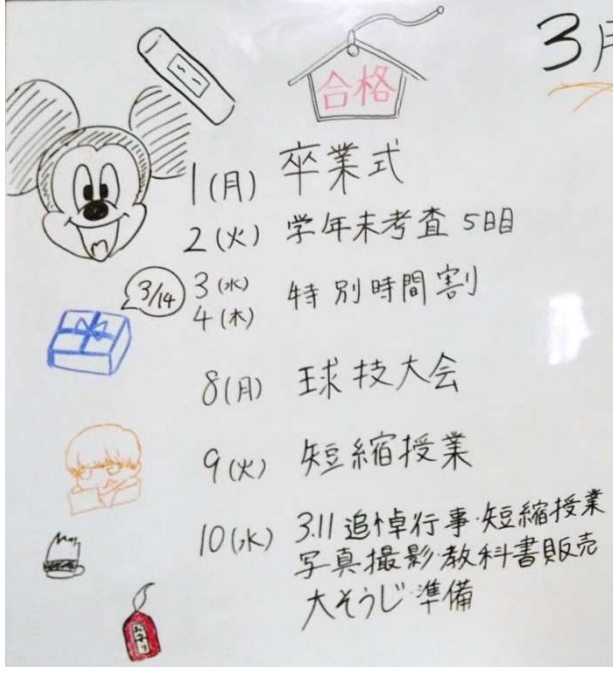 3月
合格
1(月) 卒業式
2(火) 学年末考査 5日目
3/14
3(水)
4(木) 特別時間割
8(月) 球技大会
9(火) 短縮授業
10(水) 3.11追悼行事・短縮授業
写真撮影・教科書販売
大そうじ・準備
お守り